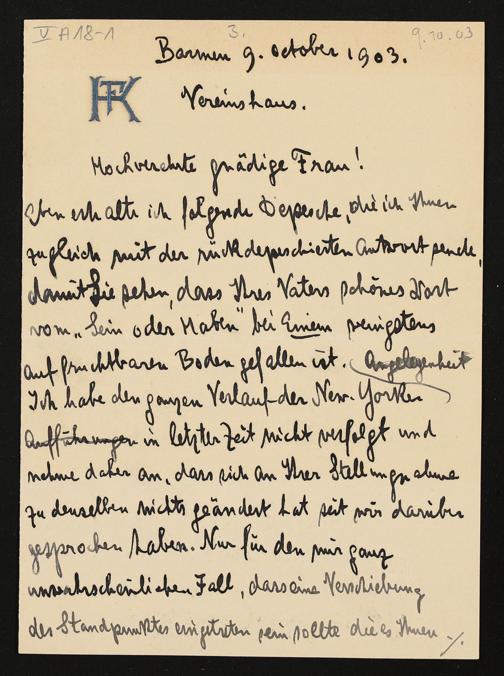 V A 18-1
3.
9.10.03
Barmen 9. October 1903.
FK
Vereinshaus.
Hochverehrte gnädige Frau!
Eben erhalte ich folgende Depesche, die ich Ihnen
zugleich mit der rückdepeschierten Antwort sende,
damit Sie sehen, dass Ihres Vaters schönes Wort
vom „Sein oder Haben" bei Einem wenigstens
auf fruchtbaren Boden gefallen ist. Angelegenheit
Ich habe den ganzen Verlauf der New-Yorker
Aufführungen in letzter Zeit nicht verfolgt und
nehme daher an, dass sich an Ihrer Stellungnahme
zu denselben nichts geändert hat seit wir darüber
gesprochen haben. Nur für den mir ganz
unwahrscheinlichen Fall, dass eine Verschiebung
des Standpunktes eingetreten sein sollte die es Ihnen ./.